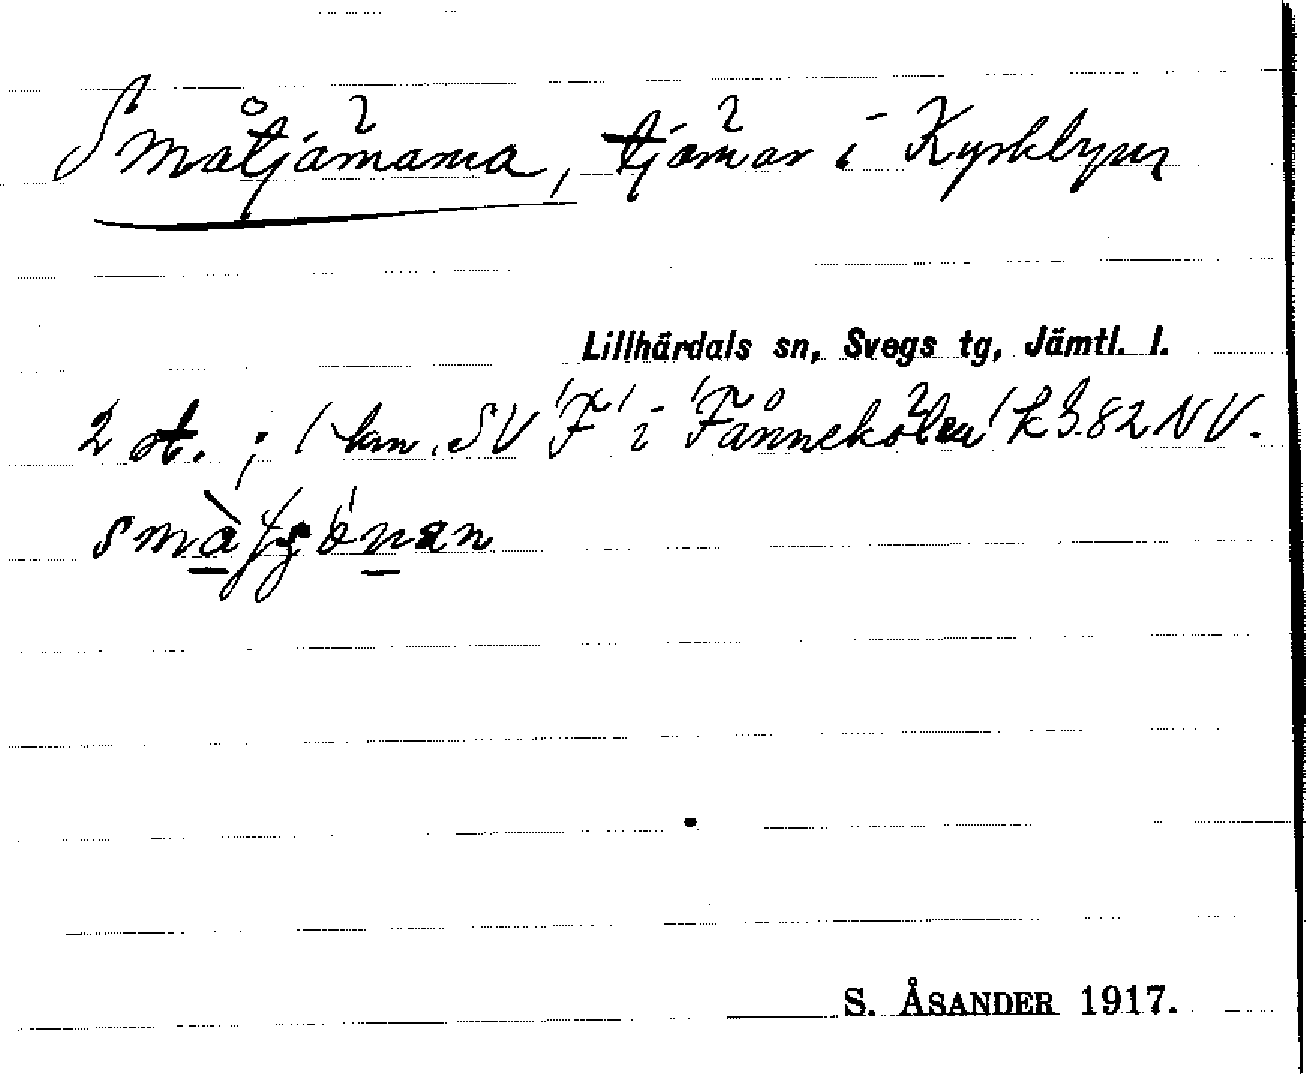 Småtjärnarna, tjärnar i Kyrkbyn
Lillhärdals sn, Svegs tg, Jämtl. l.
2 st.; 1 km. SV 'F' i 'Fånnekölen' k3.82 NV.
S. ÅSANDER 1917.